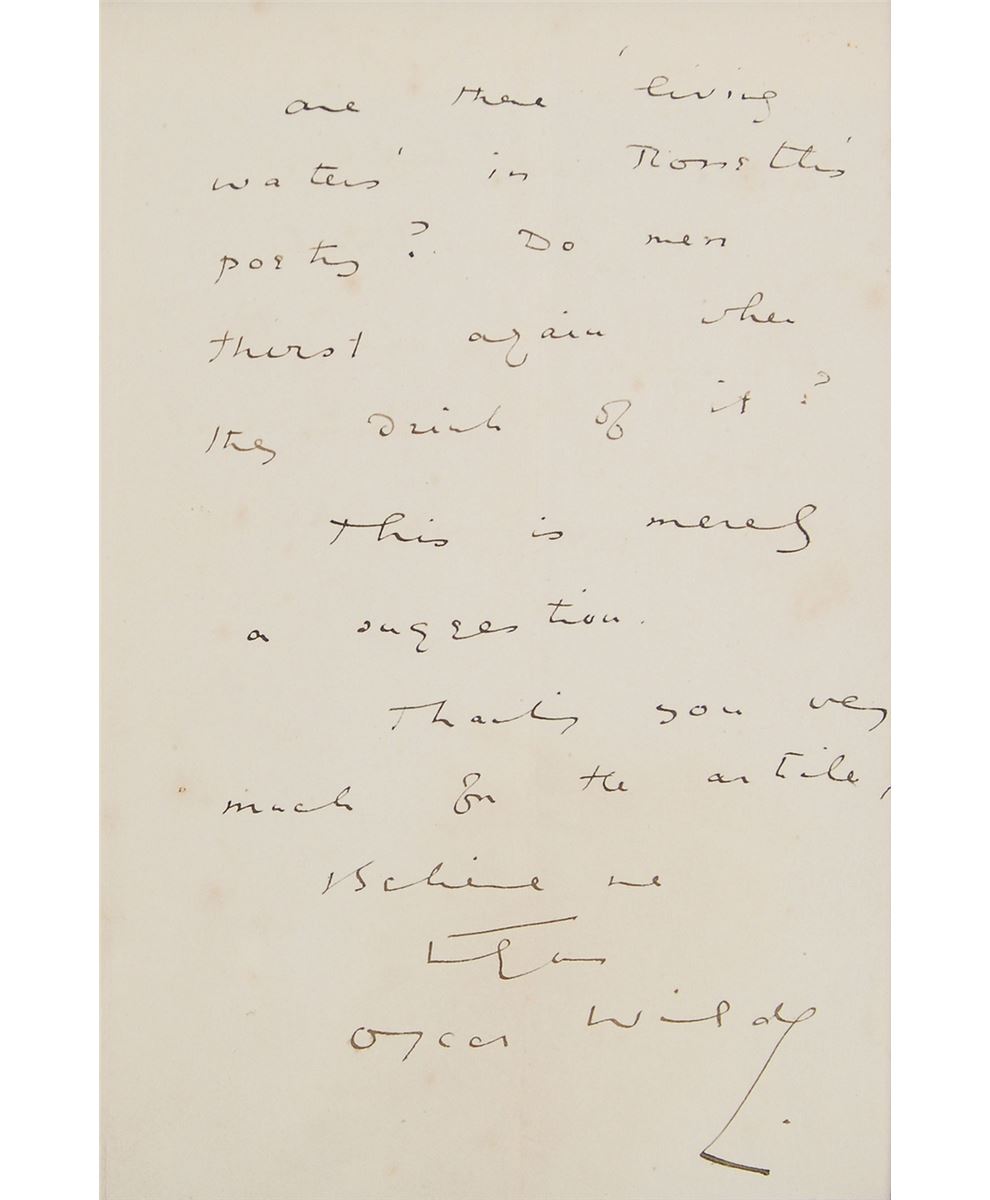 are there 'living
waters' in Rossetti's
poetry? Do men
thirst again when
they drink of it?
This is merely
a suggestion.
Thanking you very
much for the article,
Believe me
Oscar Wilde